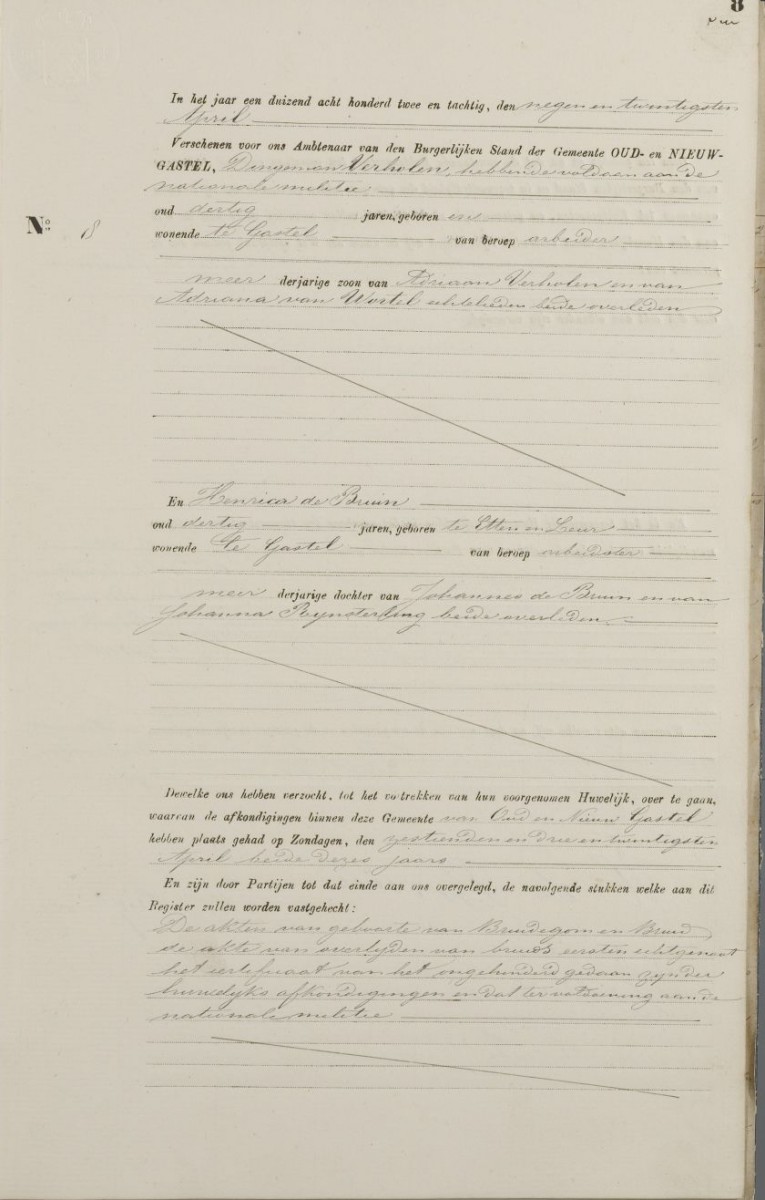 8
In het jaar een duizend acht honderd twee en tachtig, den negen en twintigsten
April
Verschenen voor ons Ambtenaar van den Burgerlijken Stand der Gemeente OUD- en NIEUW-
GASTEL, Dingeman Verholen, hebbende voldaan aan de
nationale militie
oud dertig jaren, geboren en
No. 8
wonende te Gastel van beroep arbeider
meer derjarige zoon van Adriaan Verholen en van
Adriana van Wortel echtelieden beide overleden
En Henrica de Bruin
oud dertig jaren, geboren te Etten en Leur
wonende te Gastel van beroep arbeidster
meer derjarige dochter van Johannes de Bruin en van
Johanna beide overleden
Dewelke ons hebben verzocht, tot het voltrekken van hun voorgenomen Huwelijk, over te gaan,
waarvan de afkondigingen binnen deze Gemeente van Oud en Nieuw Gastel
hebben plaats gehad op Zondagen, den zestienden en drie en twintigsten
April beide dezes jaars
En zijn door Partijen tot dat einde aan ons overgelegd, de navolgende stukken welke aan dit
Register zullen worden vastgehecht:
De akten van geboorte van Bruidegom en Bruid
de akte van overlijden van bruids eersten echtgenoot
het certificaat van het ongehinderd gedaan zijn der
huwelijks afkondigingen en dat ter voldoening aan de
nationale militie